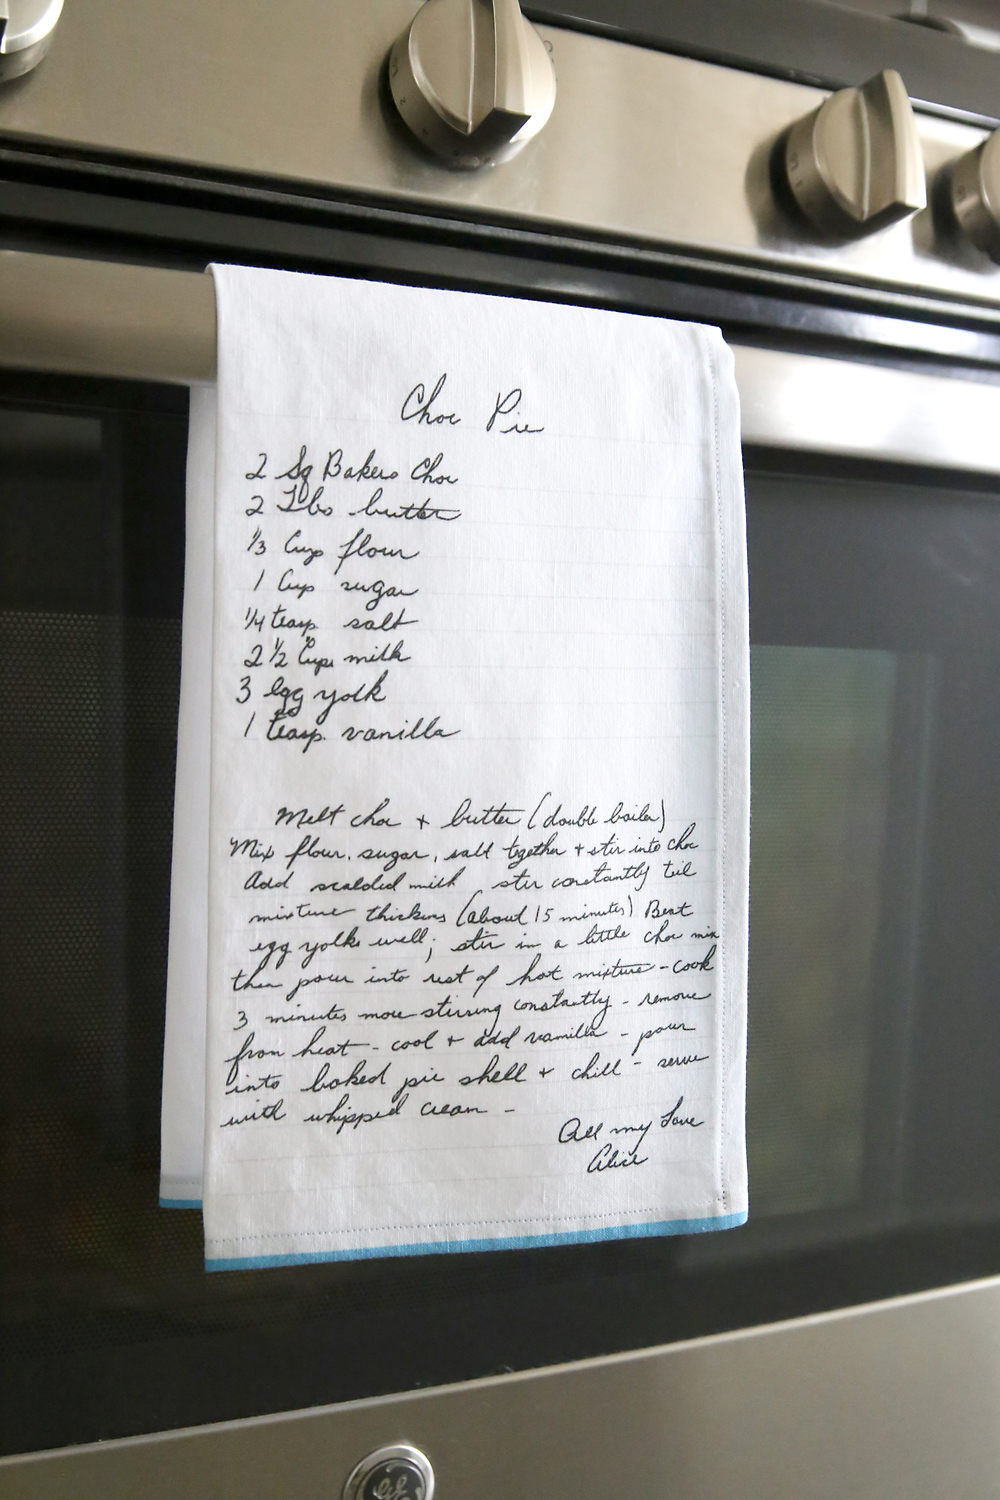 Choc Pie
2 Sq Bakers Choc
2 Tbs butter
1/3 Cup flour
1 Cup sugar
1/4 teasp. salt
2 1/2 Cups milk
3 egg yolk
1 teasp. vanilla
Melt choc + butter (double boiler)
Mix flour, sugar, salt together + stir into choc
Add scalded milk stir constantly til
mixture thickens (about 15 minutes) Beat
egg yolks well; stir in a little choc mix
then pour into rest of hot mixture - cook
3 minutes more stirring constantly - remove
from heat - cool + add vanilla - pour
into baked pie shell + chill - serve
with whipped cream -
All my Love
Alice
GE